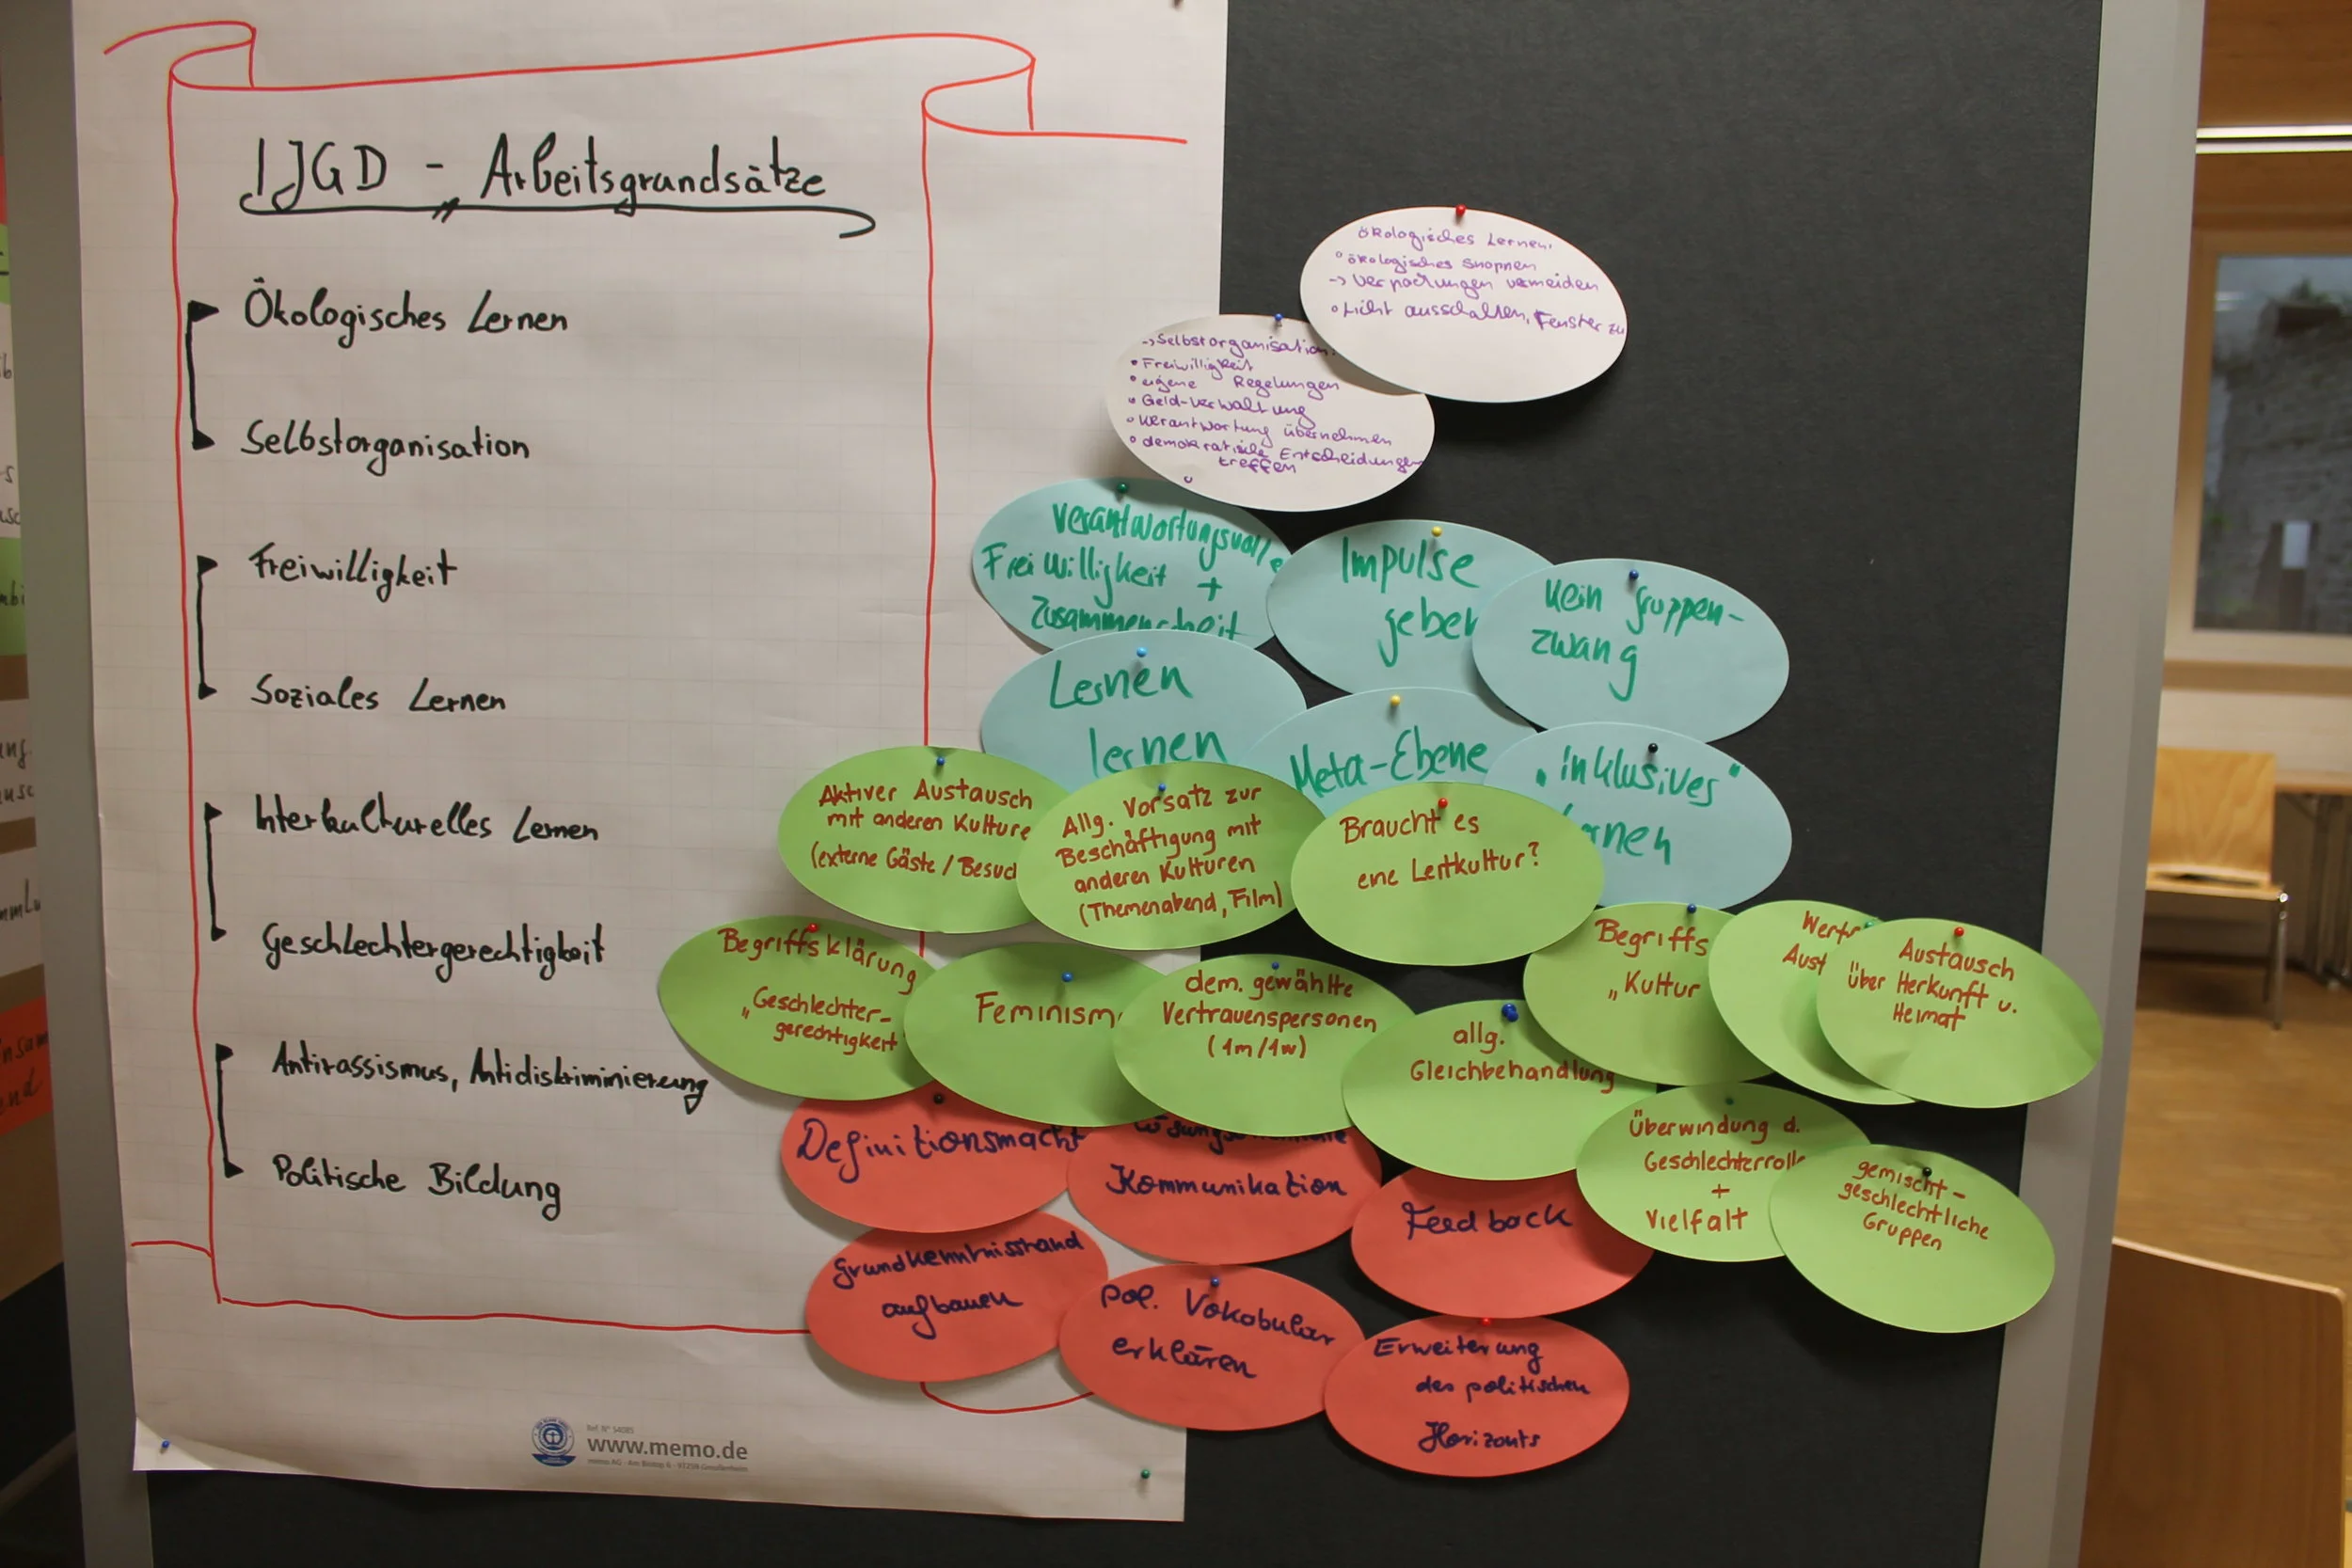 IJGD - Arbeitsgrundsätze
Ökologisches Lernen
Selbstorganisation
Freiwilligkeit
Soziales Lernen
Interkulturelles Lernen
Geschlechtergerechtigkeit
Antirassismus, Antidiskriminierung
Politische Bildung
www.memo.de
ökologisches Lernen:
° ökologisches shoppen
-> Verpackungen vermeiden
° Licht ausschalten, Fenster zu
-> Selbstorganisation:
• Freiwilligkeit
• eigene Regelungen
• Geld-Verwaltung
° Verantwortung übernehmen
° demokratische Entscheidungen
treffen
Verantwortungsvolle
Freiwilligkeit +
Impulse
geben
Kein Gruppen-
zwang
Lernen
lernen
Meta-Ebene
"inklusives"
Aktiver Austausch
mit anderen Kulture
(externe Gäste / Besuch
Allg. Vorsatz zur
Beschäftigung mit
anderen Kulturen
(Themenabend, Film)
Braucht es
eine Leitkultur?
Begriffsklärung
„Geschlechter-
gerechtigkeit
Feminism
dem. gewählte
Vertrauenspersonen
(1m/1w)
allg.
Gleichbehandlung
Begriffs
„Kultur
Aust
Austausch
über Herkunft u.
Heimat
Überwindung d.
Geschlechterroll
+
Vielfalt
gemischt-
geschlechtliche
Gruppen
Definitionsmacht
Kommunikation
Feedback
Grundkenntnisstand
aufbauen
pol. Vokabular
erklären
Erweiterung
des politischen
Horizonts